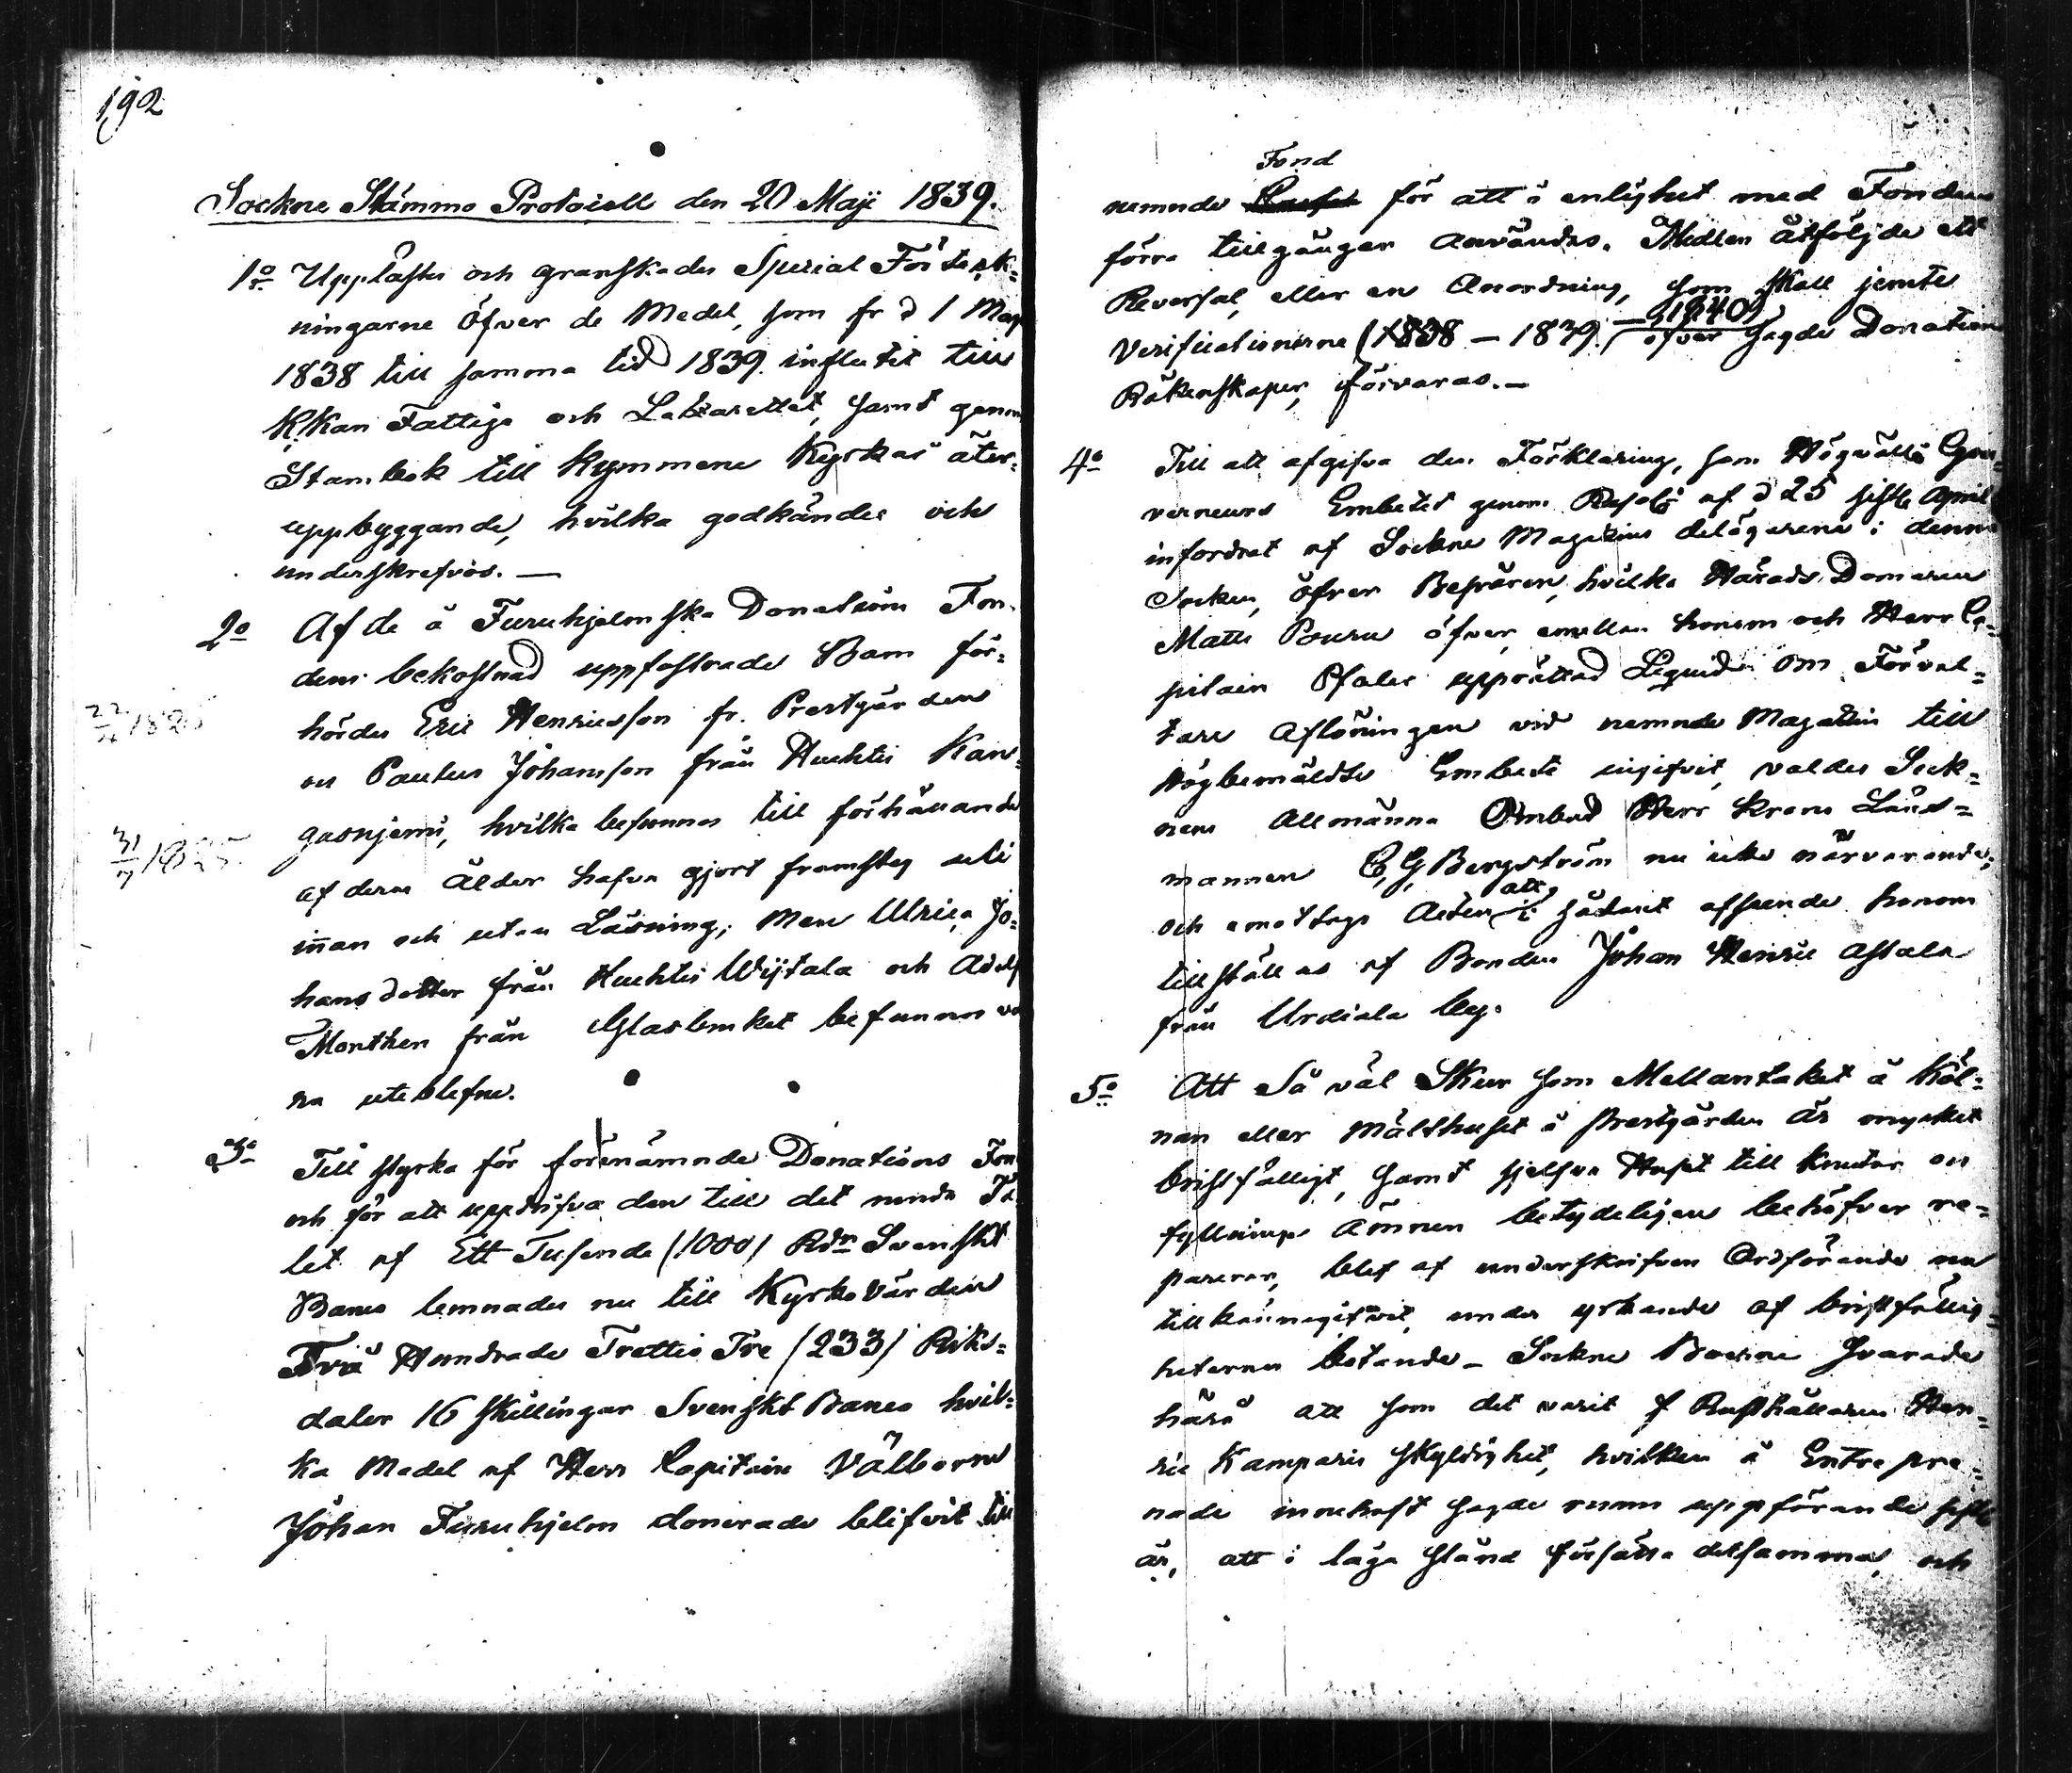 192
Sockne Stämmo Protocoll den 20 Maji 1839.
1o Upplästes och granskades Special Förtek=
ningarne öfver de Medel, som fr d 1 Maji
1838 till samma tid 1839. influtit till
K,kan Fattige och Lazarettet, samt genom
Stambok till Kymmene Kyrkas åter=
uppbyggande, hvilka godkändes och
underskrefvos. —
2o Af de å Furuhjelmska Donations Fon
dens bekostnad uppfostrade Barn för=
hördes Eric Henricsson fr. Prestgården
22/4 1825
oc Paulus Johansson från Huhtis Kan=
gasnjemi, hvilka befunnos till förhållande
31/7 1825.
af deras ålder hafva gjort framsteg uti
innan och utan Läsning; men Ulrica Jo=
hansdotter från Huhtis Wijtala och Adolf
Monthen från Glasbruket befunnos va
ra uteblefne.
3o Till styrka för förenämnde Donations Fon
och för att uppdrifva den till det runda Ta
let af Ett Tusende (1000) Rdr Svenskt
Banco lemnades nu till Kyrkovärden
Två Hundrade Trettio Tre (233) Riks=
daler 16 skillingar Svenskt Banco hvil=
ka Medel af Herr Capitain Välborne
Johan Furuhjelm donerade blifvit till
Fond
nemnde för att i enlighet med Fondens
förra tillgångar användas. Medlen åtföljde ett
Reversal, eller en Anordning, som skall jemte
— 1840)
Verificationerne (1838 — 1839. öfver sagde Donations
Räkenskaper, förvaras. —
4o Till att afgifva den Förklaring, som Högvälb Gou=
verneurs Embetet genom Resol: af d 25 sistl April
infordrat af Sockne Magazins delägarene i denna
Socken, öfver Besvären, hvilka Härads Domaren
Matts Pouru öfver, emellan honom och Herr Ca=
pitain Pfaler upprättad Liquid om Förval=
tare Aflöningen vid nemnde Magazin till
Högbemäldte Embete ingifvit, valdes Sock=
nens Allmänna Ombud Herr Krono Läns=
mannen C, G, Bergström nu icke närvarande,
och emottogs Acten att i sådant afseende honom
tillställas af Bonden Johan Henric Assala
från Urdiala by.
5o Att Så väl Skur som Mellantaket å Köl=
nan eller Mälthuset å Prestgården är mycket
bristfälligt, samt sjelfva Huset till knutar oc
fyllnings ämnen betydeligen behöfver re=
pareras, blef af underskrifven Ordförande nu
tillkännagifvit, under yrkande af bristfällig=
heternes botande — Sockne Boerne svarade
härå att som det varit f Rusthållaren Hen=
ric Kamparis skyldighet, hvilken å Entrepre=
nade innehaft sagde rums uppförande sistl
år, att i laga stånd försätta detsamma, och